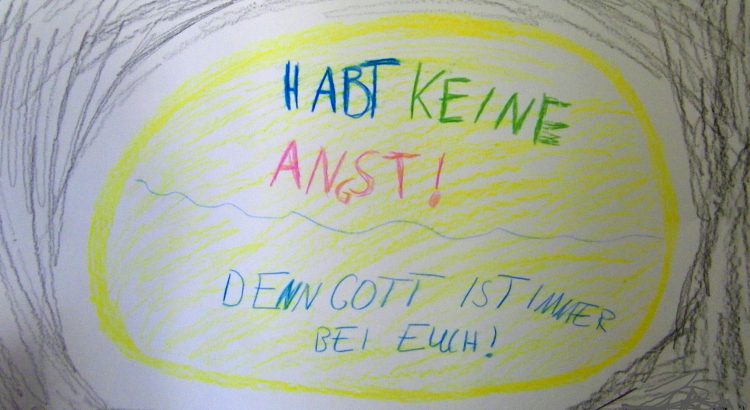 HABT KEINE
ANGST!
DENN GOTT IST IMMER
BEI EUCH!